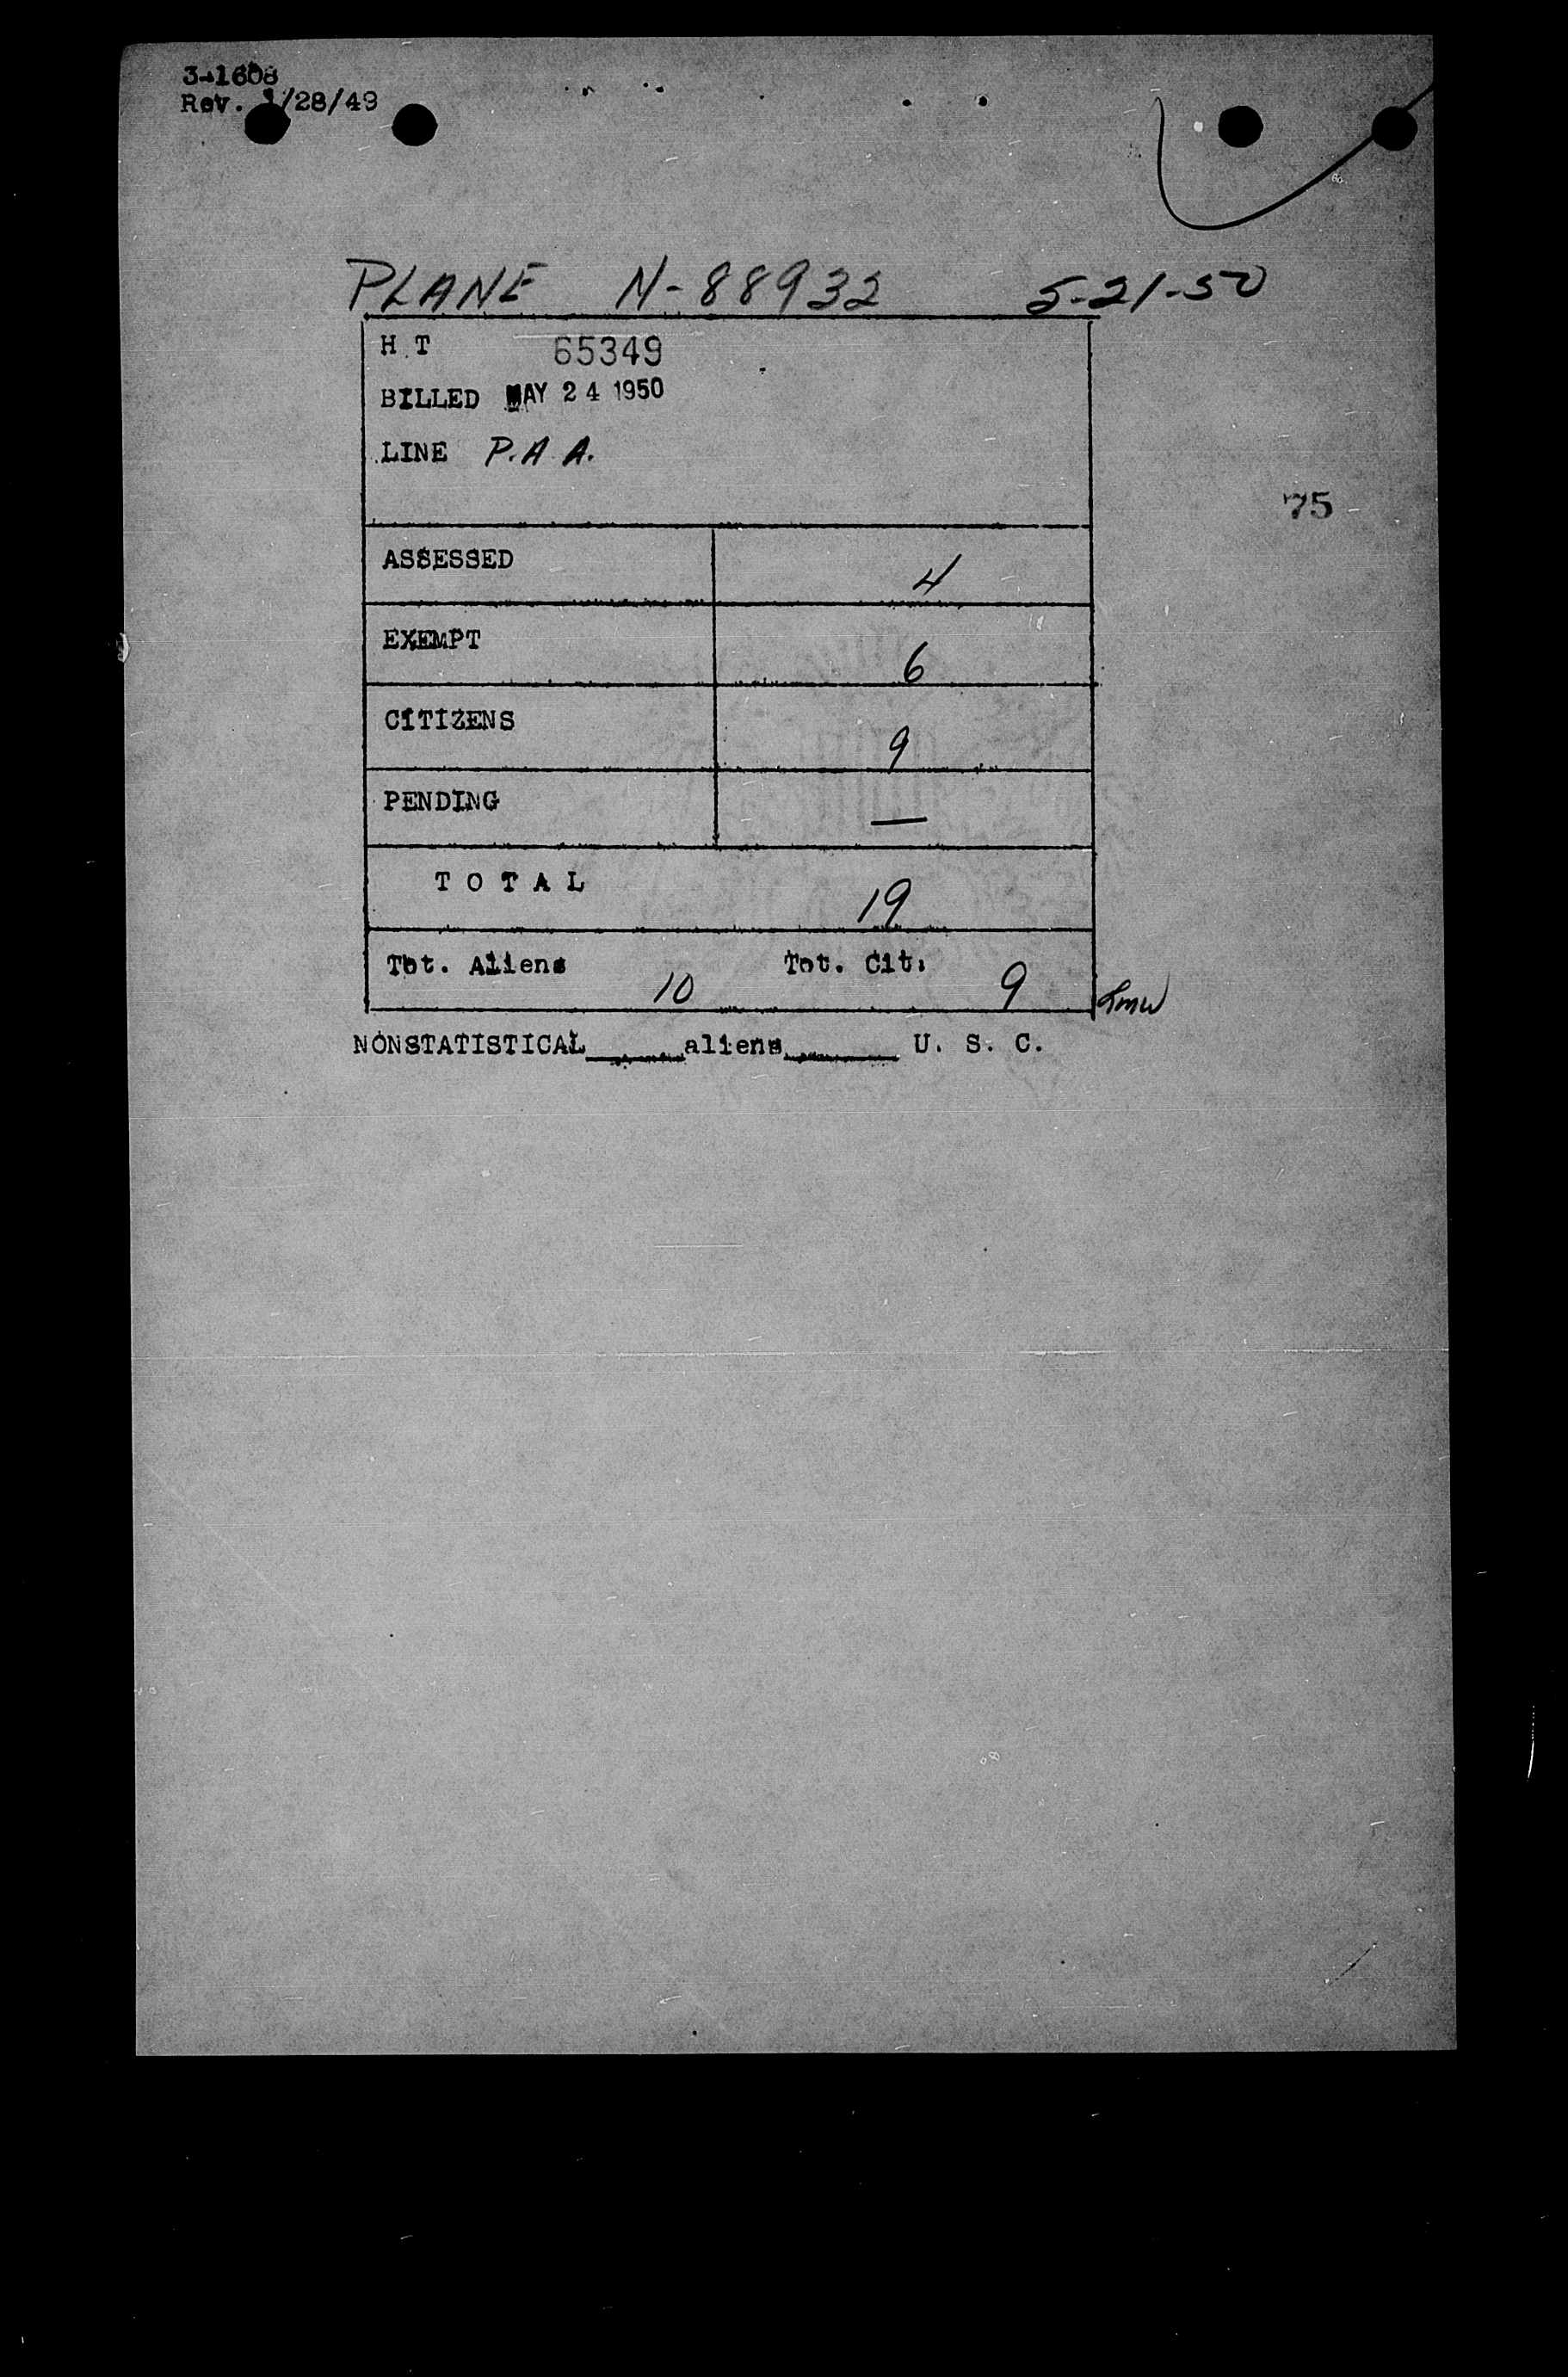 3-1608
Rev. 1/28/49
PLANE N-88932 5-21-50
H.T 65349
BILLED MAY 24 1950
LINE P.A.A.
75
ASSESSED 4
EXEMPT 6
CITIZENS 9
PENDING —
TOTAL 19
Tot. Aliens 10 Tot. Cit. 9
NONSTATISTICAL______aliens_______ U. S. C.